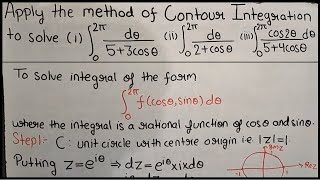 Apply the method of Contour Integration
to solve (i) ∫₀^2π dθ/5+3cosθ (ii) ∫₀^2π dθ/2+cosθ (iii) ∫₀^2π cos2θ dθ/5+4cosθ
To solve integral of the form
∫₀^2π f(cosθ, sinθ) dθ
where the integral is a rational function of cosθ and sinθ.
Step1:- C: unit circle with centre origin i.e. |z|=1
Putting z=e^iθ ⇒ dz=e^iθ xixdθ